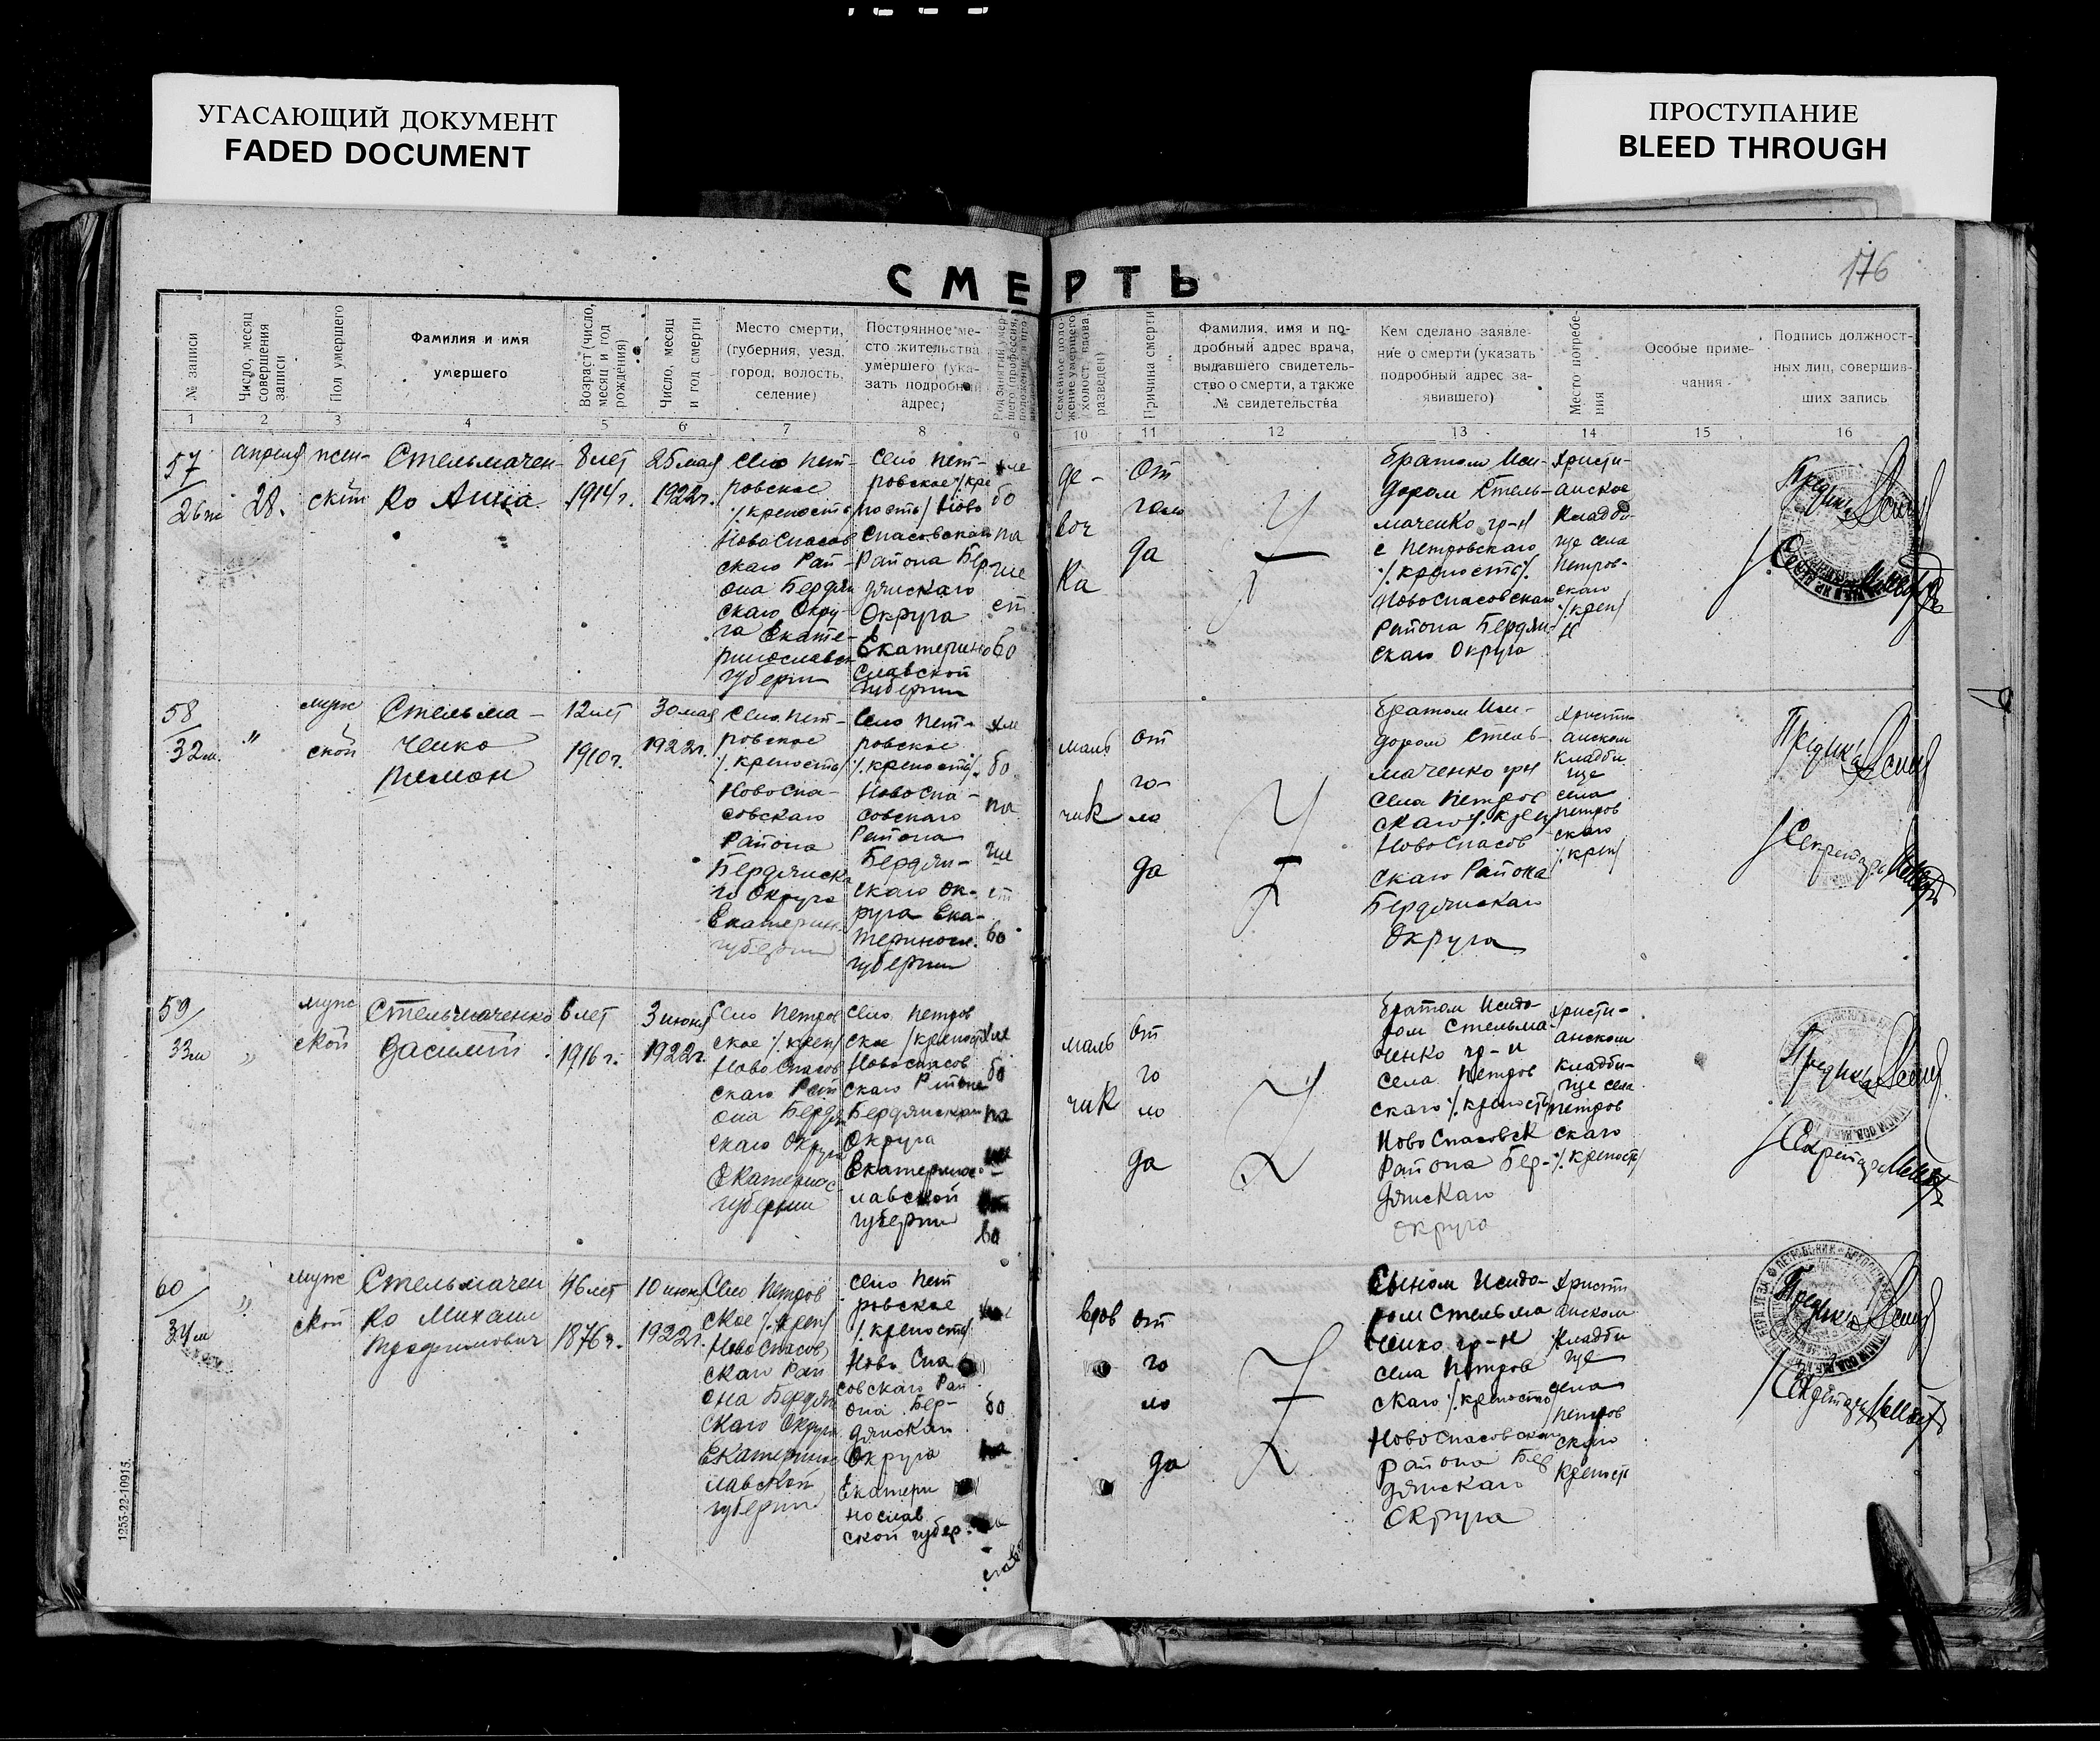 УГАСАЮЩИЙ ДОКУМЕНТ
FADED DOCUMENT
ПРОСТУПАНИЕ
BLEED THROUGH
176
СМЕРТЬ
№ записи
Число, месяц совершения записи
Пол умершего
Фамилия и имя
умершего
Возраст (число, месяц и год рождения)
Число, месяц и год смерти
Место смерти,
(губерния, уезд,
город, волость,
селение)
Постоянное ме-
сто жительства
умершего (ука-
зать подробный
адрес)
Семейное поло-
жение умершего
холост, вдова,
разведен)
Причина смерти
Фамилия, имя и по-
дробный адрес врача,
выдавшего свидетель-
ство о смерти, а также
№ свидетельства
Кем сделано заявле-
ние о смерти (указать
подробный адрес за-
явившего)
Место погребе-
ния
Особые приме-
чания
Подпись должност-
ных лиц, совершив-
ших запись
1 2 3 4 5 6 7 8 9 10 11 12 13 14 15 16
57
26ж
апреля
28.
жен-
ский
Стельмачен-
ко Анна
8 лет
1914 г.
25 мая
1922 г.
село Пет-
ровское
/крепость/
Новоспасов
скаго Рай-
она Бердян
скаго Окру-
га Екате-
ринославск
губернии
село Пет-
ровское /кре
пость/ Ново
спасовскаго
Района Бер
дянскаго
Округа
Екатерино
славской
губернии
хле
бо
па
ше
ст
во
де-
воч
ка
от
голо
да
братом Иси-
дором Стель-
маченко гр-н
с Петровскаго
/крепость/
Новоспасовскаго
Района Бердян-
скаго Округа
христи-
анское
кладби-
ще села
Петров-
скаго
/креп/
58
32м.
"
муж
ской
Стельма-
ченко
Пимон
12 лет
1910 г.
30 мая
1922 г.
Село Пет-
ровское
/крепость/
Новоспа-
совскаго
Района
Бердянска
го Округа
Екатерин.
губернии
Село Пет-
ровское
/крепость/
Новоспа-
совскаго
Района
Бердян-
скаго Ок-
руга Ека-
териносл.
губернии
хле
бо
па
ше
ст
во
маль
чик
от
го-
ло
да
братом Иси-
дором Стель-
маченко грн
села Петров
скаго /креп/
Новоспасов
скаго Района
Бердянскаго
Округа
христи-
анском
кладби
ще
села
Петров
скаго
/креп/
Секретарь
59
33м
"
муж
ской
Стельмаченко
Василий
6 лет
1916 г.
3 июня
1922 г.
Село Петров
ское /креп/
Новоспасов
скаго Рай
она Бердян
скаго Округа
Екатеринос
губернии
село Петров
ское /крепость/
Новоспасов
скаго Района
Бердянскаго
Округа
Екатеринос-
лавской
губернии
хле
бо
па
во
маль
чик
от
го
ло
да
братом Исидо-
ром Стельма-
ченко гр-н
села Петров
скаго /крепость/
Новоспасовск
Района Бер-
дянскаго
округа
христи-
анском
кладби-
ще села
Петров
скаго
/крепость/
Секретарь
60
34м
"
муж
ской
Стельмачен
ко Михаил
Трофимович
46 лет
1876 г.
10 июня
1922 г.
Село Петров
ское /креп/
Новоспасов
скаго Рай
она Бердян
скаго Округа
Екатеринос
лавской
губернии
село Пет
ровское
/крепость/
Ново Спа
совскаго Рай
она Бер-
дянскаго
Округа
Екатери
нослав
ской губер.
бо
па
вдов
от
го
ло
да
Сыном Исидо-
ром Стельма
ченко гр-н
села Петров
скаго /крепость/
Новоспасовскаго
района Бер
дянскаго
Округа
Христи
анском
кладби
ще
села
Петров
скаго
крепость
Секретарь
1253-22-10915.